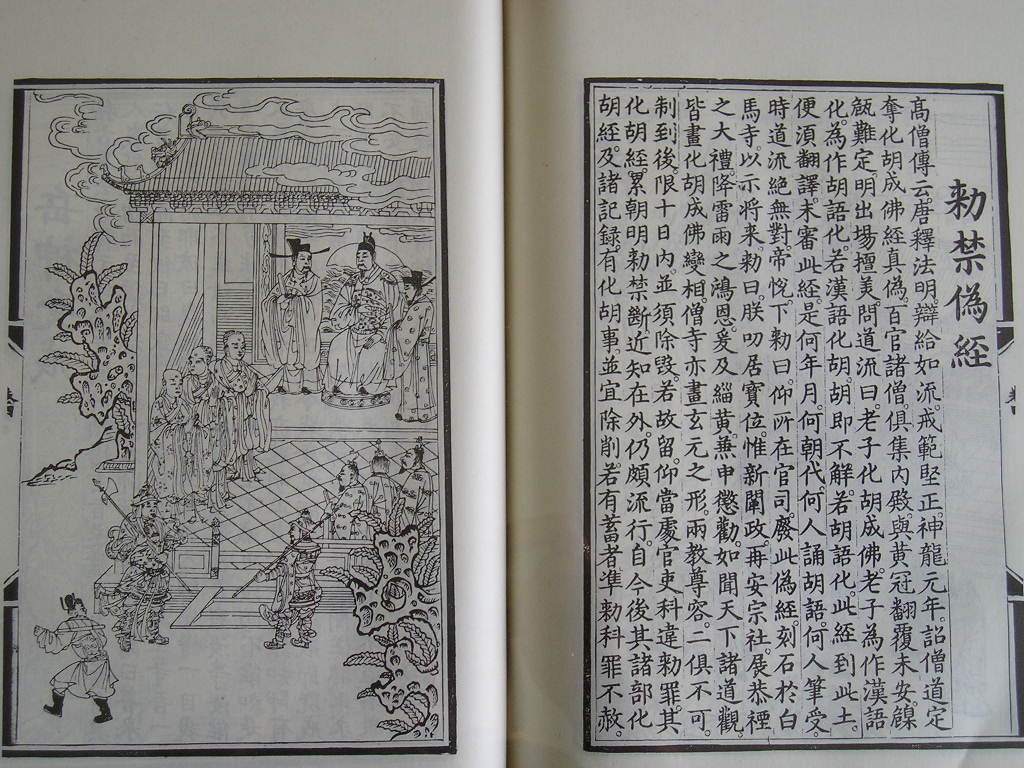 勅禁偽經
高僧傳云。唐釋法明。辯給如流。戒範堅正。神龍元年。詔僧道定
奪化胡成佛經真偽。百官諸僧俱集內殿。與黃冠翻覆未安。
難定。明出場擅美。問道流曰。老子化胡成佛。老子為作漢語
化。為作胡語化。若漢語化胡。胡即不解。若胡語化。此經到此土。
便須翻譯。未審此經。是何年月。何朝代。何人誦胡語。何人筆受。
時道流絕無對。帝悅。下勅曰。仰所在官司。廢此偽經。刻石於白
馬寺。以示將來。勅曰。朕叨居寶位。惟新闡政。再安宗社。展恭禋
之大禮。降雷雨之鴻恩。爰及緇黃。兼申懲勸。如聞天下諸道觀
皆畫化胡成佛變相。僧寺亦畫玄元之形。兩教尊容。二俱不可。
制到後。限十日內。並須除毀。若故留。仰當處官吏科違勅罪。其
化胡經。累朝明勅禁斷。近知在外。仍頗流行。自今後其諸部化
胡經。及諸記録。有化胡事。並宜除削。若有蓄者。准勅科罪不赦。